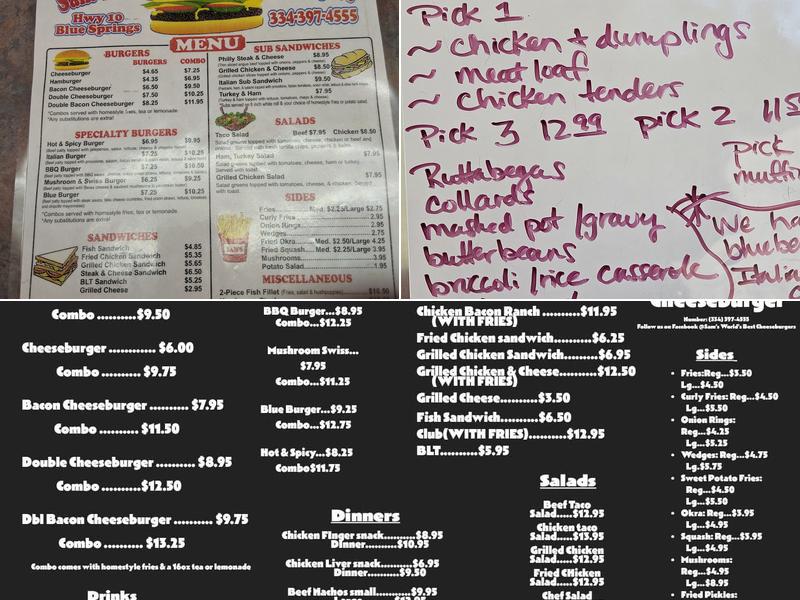 Hwy 10
Blue Springs
334-397-4555
MENU
BURGERS
BURGERS COMBO
Cheeseburger $4.65 $7.25
Hamburger $4.35 $6.95
Bacon Cheeseburger $6.50 $9.50
Double Cheeseburger $7.50 $10.25
Double Bacon Cheeseburger $8.25 $11.95
*Combos served with homestyle fries, tea or lemonade
*Any substitutions are extra!
SPECIALTY BURGERS
Hot & Spicy Burger $6.95 $9.95
Italian Burger $7.25 $10.25
BBQ Burger $7.25 $10.50
Mushroom & Swiss Burger $6.25 $9.25
Blue Burger $7.25 $10.25
*Combos served with homestyle fries, tea or lemonade
*Any substitutions are extra!
SANDWICHES
Fish Sandwich $4.85
Fried Chicken Sandwich $5.35
Grilled Chicken Sandwich $5.65
Steak & Cheese Sandwich $6.50
BLT Sandwich $5.25
Grilled Cheese $2.95
SUB SANDWICHES
Philly Steak & Cheese $8.95
Grilled Chicken & Cheese $8.50
Italian Sub Sandwich $9.50
Turkey & Ham $7.95
SALADS
Taco Salad Beef $7.95 Chicken $8.50
Ham, Turkey Salad $7.95
Grilled Chicken Salad $7.95
SIDES
Fries Med. $2.25/Large $2.75
Curly Fries 2.95
Onion Rings 2.95
Wedges 2.75
Fried Okra Med. $2.50/Large 4.25
Fried Squash Med. $2.25/Large 3.95
Mushrooms 3.95
Potato Salad 1.95
MISCELLANEOUS
2-Piece Fish Fillet (Fries, salad & hushpuppies) $10.50
Pick 1
~ chicken + dumplings
~ meatloaf
~ chicken tenders
Pick 3 12.99 pick 2 11.5
Ruttabegas
collards
mashed pot / gravy
butterbeans
broccoli / rice casserole
Pick
muffin
We ha
bluebe
Italia
Combo ..........$9.50
Cheeseburger ............ $6.00
Combo .......... $9.75
Bacon Cheeseburger .......... $7.95
Combo .......... $11.50
Double Cheeseburger .......... $8.95
Combo ..........$12.50
Dbl Bacon Cheeseburger .......... $9.75
Combo .......... $13.25
Combo comes with homestyle fries & a 16oz tea or lemonade
Drinks
BBQ Burger...$8.95
Combo...$12.25
Mushroom Swiss...
$7.95
Combo...$11.25
Blue Burger...$9.25
Combo...$12.75
Hot & Spicy...$8.25
Combo$11.75
Dinners
Chicken Finger snack..........$8.95
Dinner...$10.95
Chicken Liver snack..........$6.95
Dinner....$9.50
Beef Nachos small..........$9.95
Chicken Bacon Ranch ..........$11.95
(WITH FRIES)
Fried Chicken sandwich..........$6.25
Grilled Chicken Sandwich..........$6.95
Grilled Chicken & Cheese..........$12.50
(WITH FRIES)
Grilled Cheese..........$3.50
Fish Sandwich..........$6.50
Club(WITH FRIES)..........$12.95
BLT..........$5.95
Salads
Beef Taco
Salad.....$12.95
Chicken taco
Salad.....$13.95
Grilled Chicken
Salad.....$12.95
Fried CHicken
Salad.....$12.95
Chef Salad
Cheeseburger
Number: (334) 397-4555
Follow us on Facebook @Sam's World's Best Cheeseburgers
Sides
• Fries:Reg...$3.50
Lg...$4.50
• Curly Fries: Reg...$4.50
Lg...$5.50
• Onion Rings:
Reg...$4.25
Lg...$5.25
• Wedges: Reg...$4.75
Lg.$5.75
• Sweet Potato Fries:
Reg...$4.50
Lg...$5.50
• Okra: Reg...$3.95
Lg...$4.95
• Squash: Reg...$3.95
Lg...$4.95
• Mushrooms:
Reg...$4.95
Lg...$8.95
• Fried Pickles: